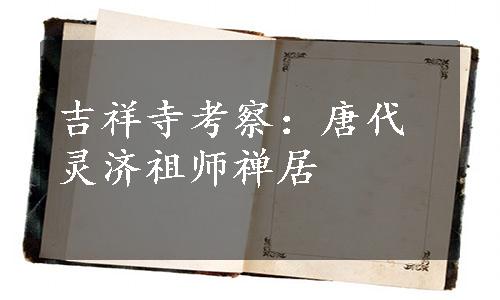 吉祥寺考察：唐代
灵济祖师禅居